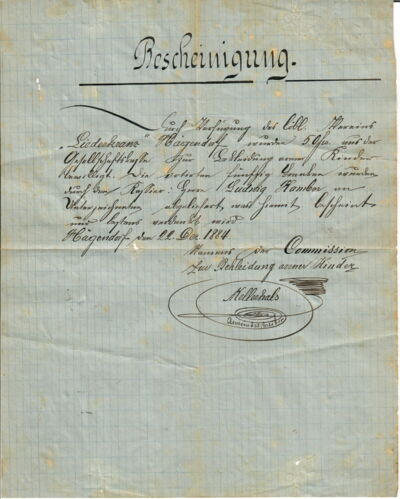 Bescheinigung.
Auch Verfügung des löbl. Vereins
„Liederkranz“ Hägendorf wurden 50 frs. aus der
Gesellschaftskasse zur Bekleidung armer Kinder
bewilligt. Die votirten fünfzig Franken wurden
durch den Kassier: Herr Ludwig Kamber an
Unterzeichneten abgeliefert was hiemit bescheint
und bestens verdankt wird
Hägendorf den 22 Dez. 1884
Namens der Commission
zur Bekleidung armer Kinder
Kellerhals